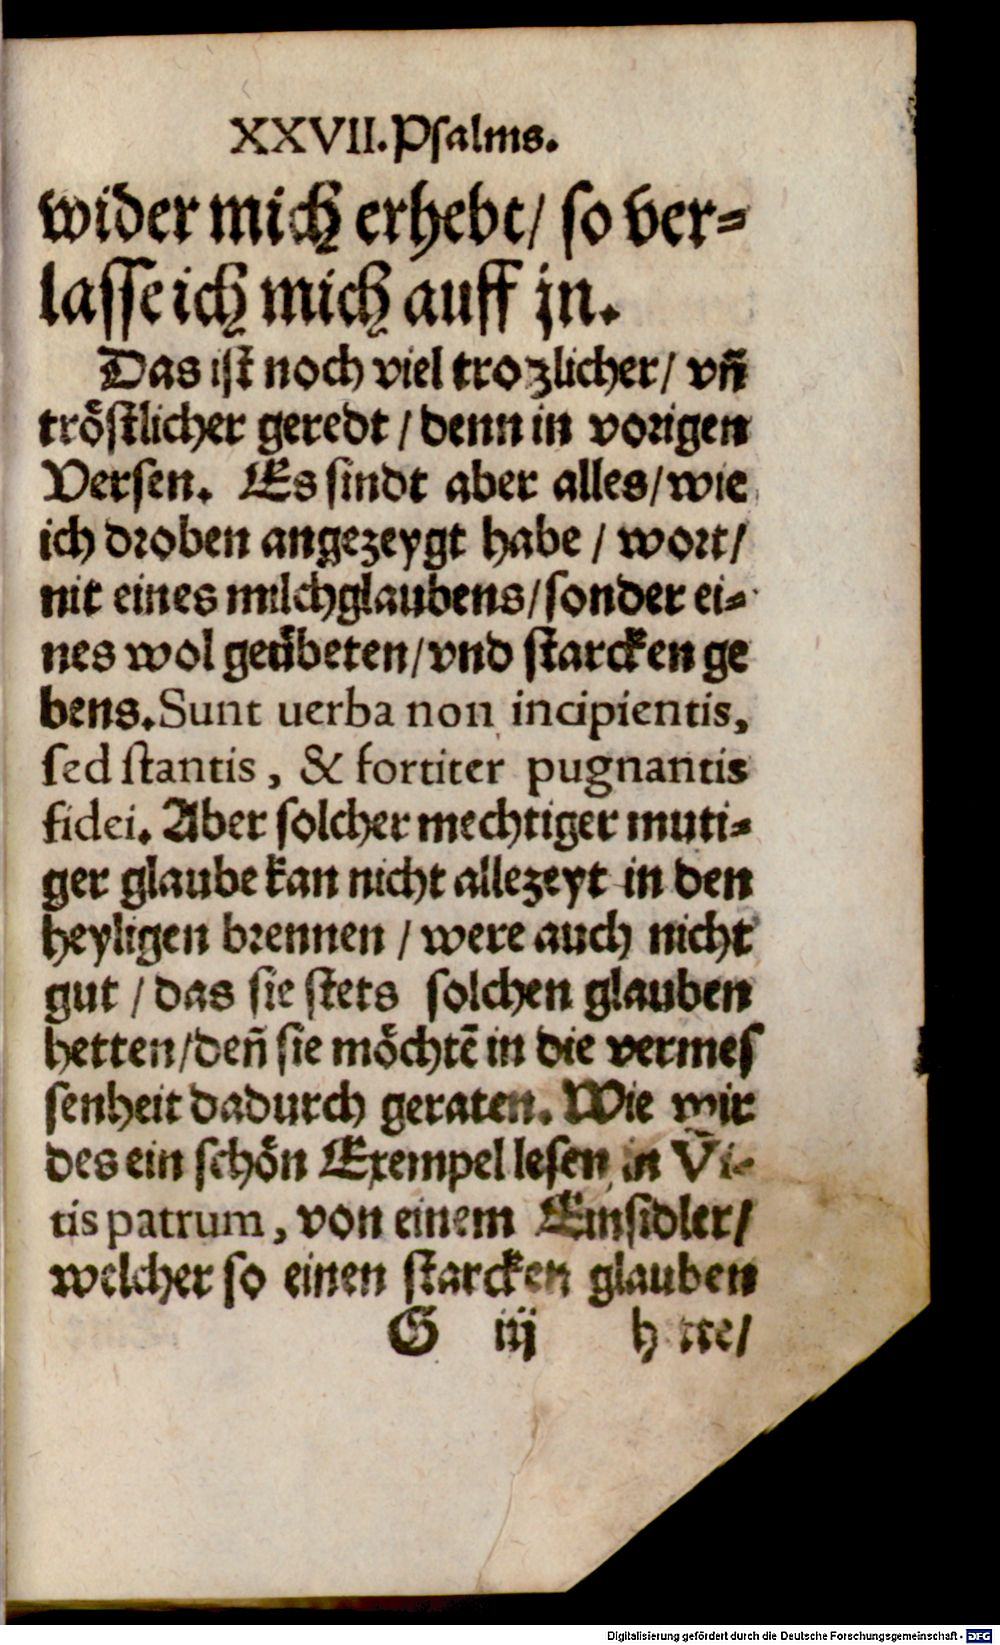 XXVII. Psalms.
wider mich erhebt/ so ver-
lasse ich mich auff jn.
Das ist noch viel trozlicher/ vñ
tröstlicher geredt / denn in vorigen
Versen. Es sindt aber alles/ wie
ich droben angezeygt habe / wort/
nit eines milchglaubens/ sonder ei-
nes wol geübeten/ vnd starcken ge
bens. Sunt uerba non incipientis,
sed stantis, & fortiter pugnantis
fidei. Aber solcher mechtiger muti-
ger glaube kan nicht allezeyt in den
heyligen brennen / were auch nicht
gut / das sie stets solchen glauben
hetten/ deñ sie möchtē in die vermes
senheit dadurch geraten. Wie wir
des ein schön Exempel lesen in Vi-
tis patrum, von einem Einsidler/
welcher so einen starcken glauben
G iij
Digitalisierung gefördert durch die Deutsche Forschungsgemeinschaft - DFG